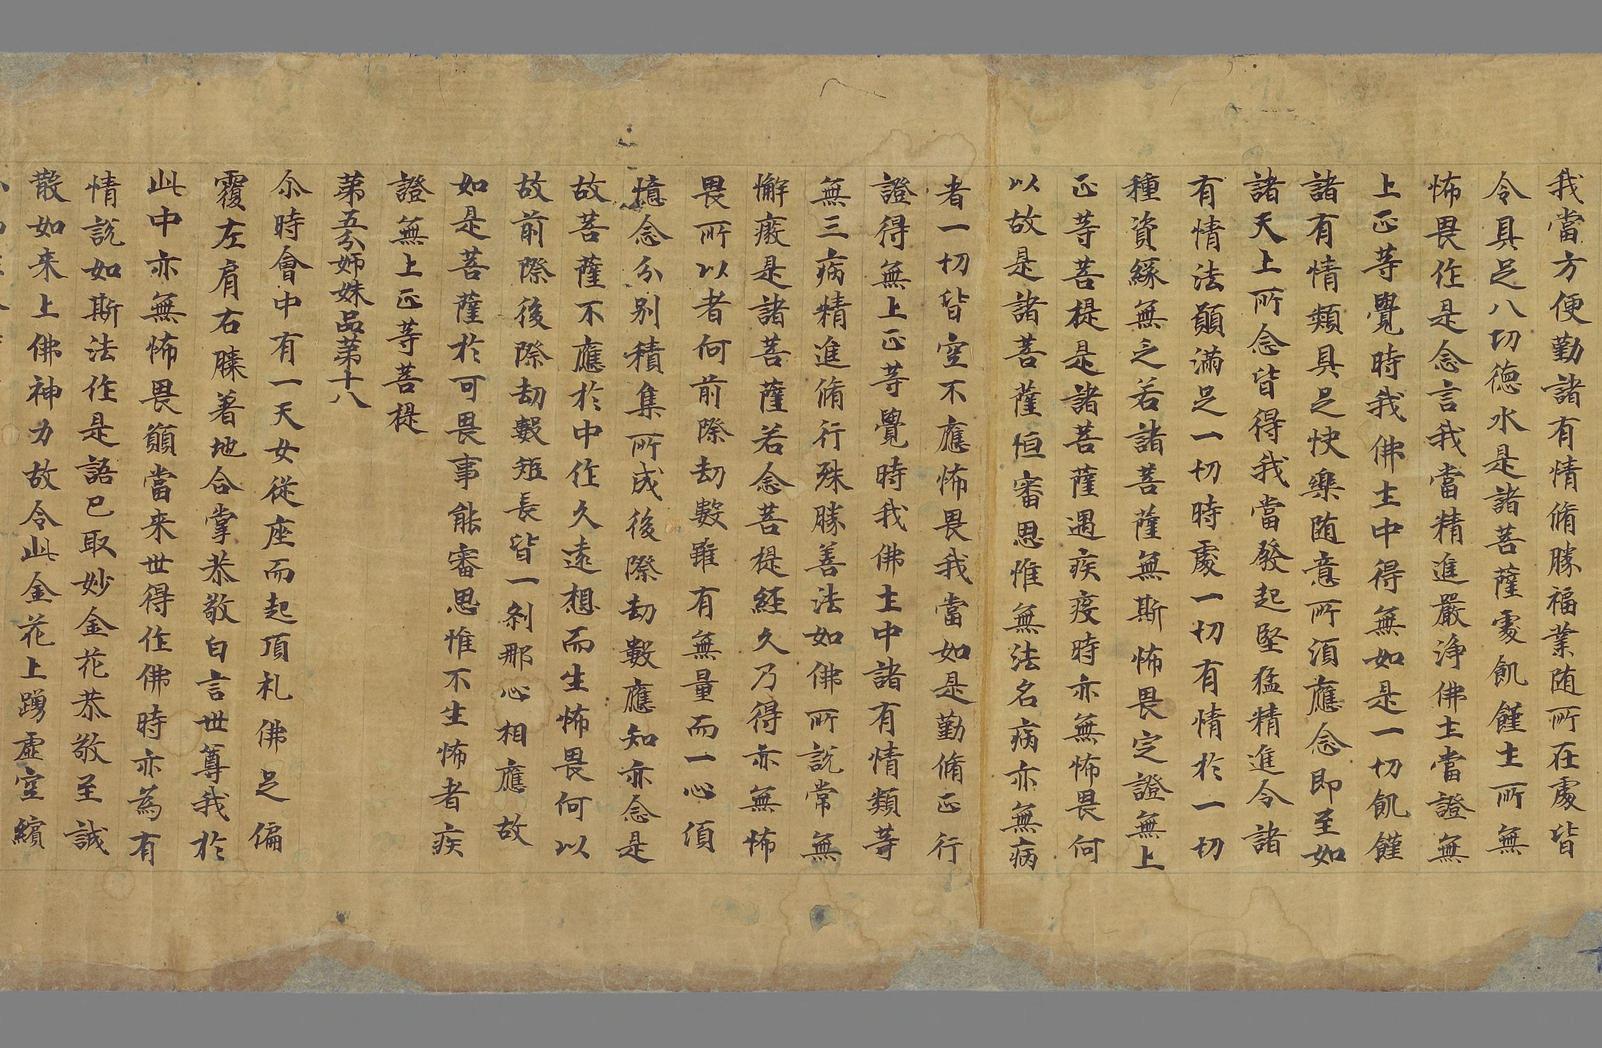 我當方便勤諸有情脩勝福業随所在處皆
令具足八切德水是諸菩薩處飢饉土所無
怖畏作是念言我當精進嚴淨佛土當證無
上正等覺時我佛土中得無如是一切飢饉
諸有情類具足快樂随意所湏應念即至如
諸天上所念皆得我當發起堅猛精進令諸
有情法願滿足一切時處一切有情於一切
種資緣無乏若諸菩薩無斯怖畏定證無上
正等菩提是諸菩薩遇疾疫時亦無怖畏何
以故是諸菩薩恒審思惟無法名病亦無病
者一切皆空不應怖畏我當如是勤脩正行
證得無上正等覺時我佛土中諸有情類等
無三病精進脩行殊勝善法如佛所說常無
懈癈是諸菩薩若念菩提經久乃得亦無怖
畏所以者何前際劫數雖有無量而一心湏
憶念分別積集所成後際劫數應知亦念是
故菩薩不應於中作久遠想而生怖畏何以
故前際後際劫數短長皆一刹那心相應故
如是菩薩於可畏事能審思惟不生怖者疾
證無上正等菩提
第五分姊妹品第十八
尒時會中有一天女從座而起頂礼佛足偏
覆左肩右膝著地合掌恭敬白言世尊我於
此中亦無怖畏願當來世得作佛時亦為有
情說如斯法作是語已取妙金花恭敬至誠
散如来上佛神力故令此金花上踴虛空繽